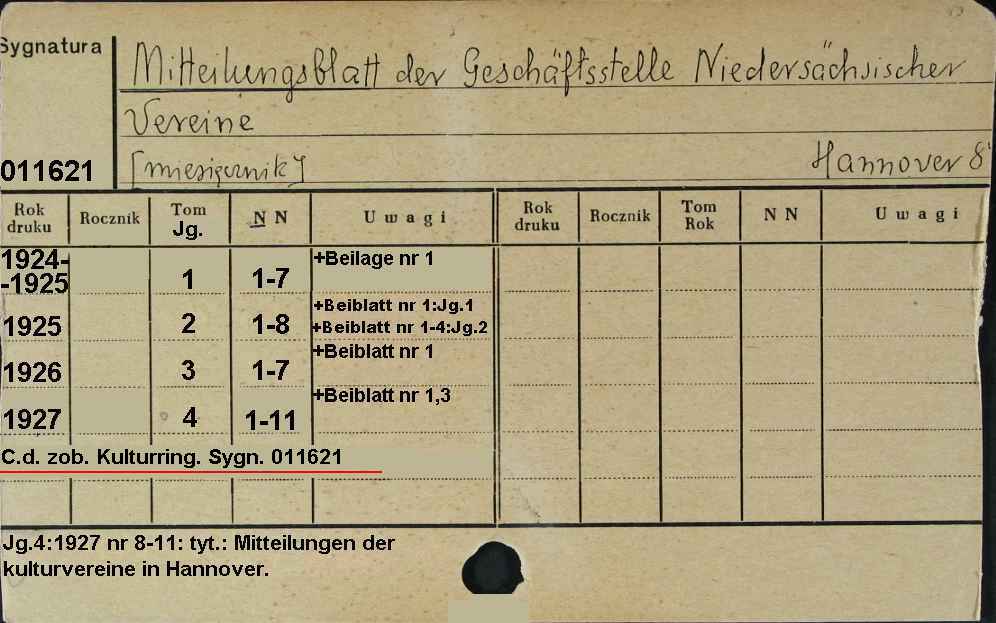 Sygnatura
Mitteilungsblatt der Geschäftsstelle Niedersächsischer
Vereine
011621
[miesięcznik]
Hannover 8°
Rok druku Rocznik Tom Jg. N N Uwagi Rok druku Rocznik Tom Rok N N Uwagi
1924--1925 1 1-7 +Beilage nr 1
1925 2 1-8 +Beiblatt nr 1:Jg.1
+Beiblatt nr 1-4:Jg.2
1926 3 1-7 +Beiblatt nr 1
1927 4 1-11 +Beiblatt nr 1,3
C.d. zob. Kulturring. Sygn. 011621
Jg.4:1927 nr 8-11: tyt.: Mitteilungen der
kulturvereine in Hannover.